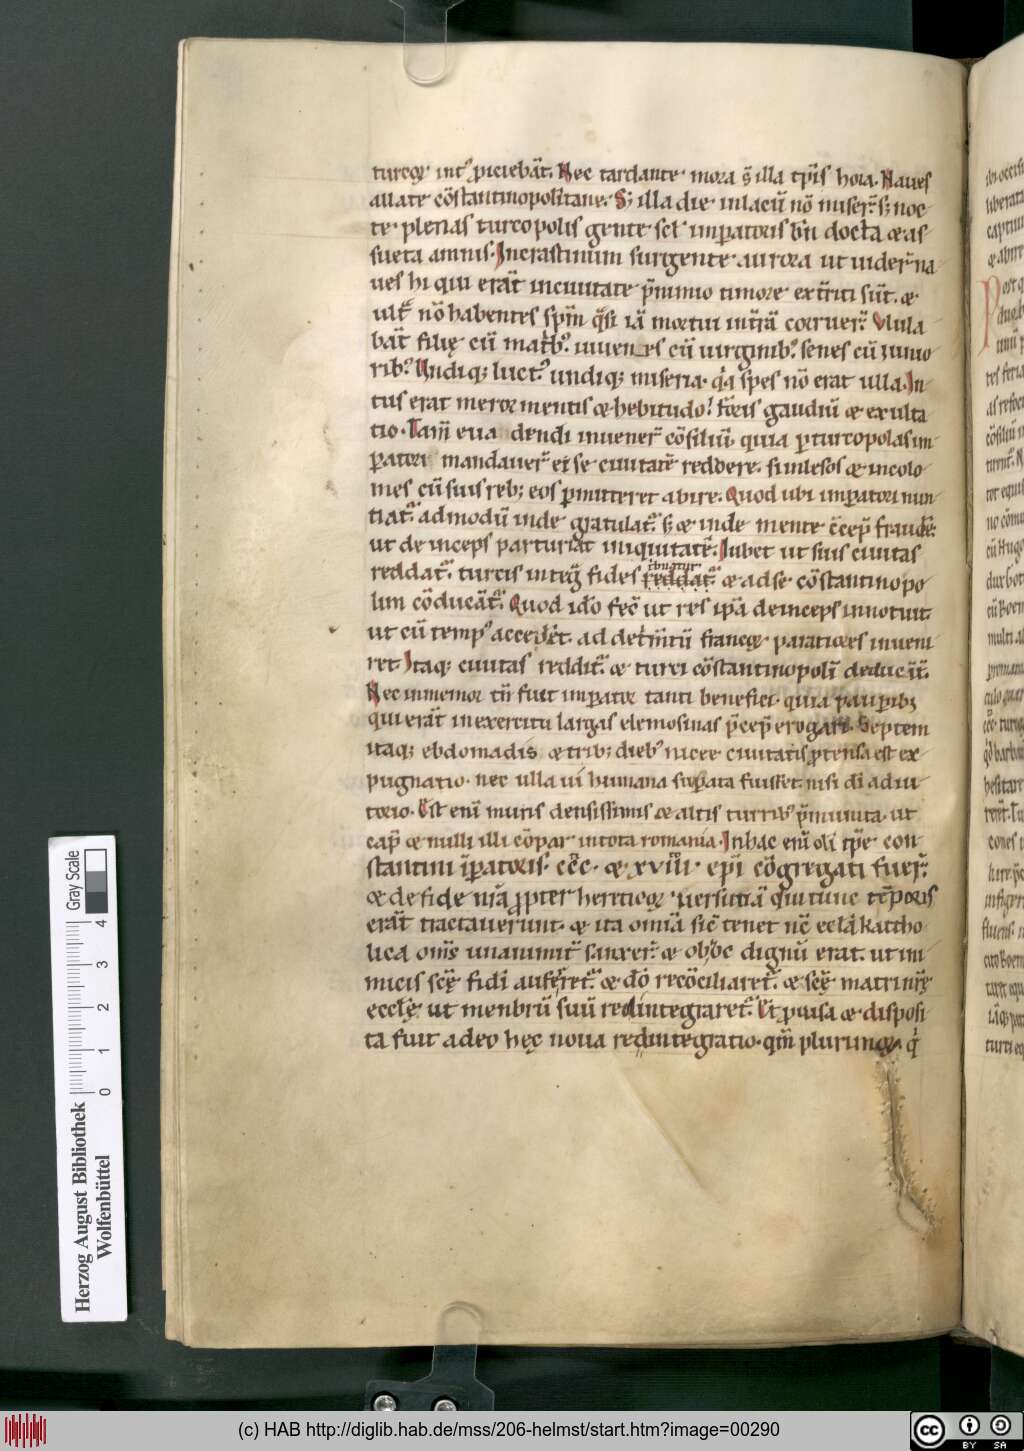 turcoꝝ intꝰ ꝓiciebāt. Nec tardante mora ẜ illa tp̄is hora. Naues
allate cōstantinopolitane. S; illa die in lacū nō miserꝫ s; noc
te plenas turcopolis gente scl̓ imꝑatoris bn̄ docta ⁊ as
sueta amnis. In crastinum surgente aurora ut uiderꝫ na
ues hi qui erāt inciuitate p̄nimio timore ext̓riti sūt. ⁊
ult̓ nō habentes spm̄ q̄si iā mortui int̓rā corruerꝫ Vlula
bāt filię cū matbꝰ. iuuenes cū uirginibꝰ. senes cū iunio
ribꝰ. Vndiq; luctꝰ. undiq; miseria. q̓a spes nō erat ulla. In
tus erat meror mentis ⁊ hebitudo. foris gaudiū ⁊ exulta
tio. Tam̄ euadendi inuenerꝫ cōsiliū. quia ꝑ turcopolas im
ꝑatori mandauerꝫ ei se ciuitatē reddere. si illesos ⁊ incolo
mes cū suis reb; eos ꝑmitteret abire. Quod ubi imꝑatori nun
tiatꝛ̄ admodū inde gratulatꝛ̄. s; ⁊ inde mente c̄cep̄ fraudē.
ut deinceps parturiat iniquitatē. Iubet ut siuis ciuitas
reddatꝛ̄. turcis integ̓ fides reddatꝛ̄ ⁊ ad se cōstantinopo
buatur
lim cōducātꝛ̄. Quod idō fec̄ ut res ipā deinceps innotuit.
ut cū tempꝰ accederet. ad det̓mtū francoꝝ paratiores inueni
ret. Itaq; ciuitas redditꝛ̄ ⁊ turci cōstantinopolī deducūtꝛ̄.
Nec inmemor tn̄ fuit imꝑator tanti benefici. quia pauꝑib;
qui erāt inexercitu largas elemosinas p̄cep̄ erogari. Septem
itaq; ebdomadis ⁊ trib; diebꝰ nicee ciuitatis ꝓtensa est ex
pugnatio. nec ulla ui humana suꝑata fuisset. nisi dī adiu
torio. Est eni muris densissimis ⁊ altis turribꝰ p̄munita. ut
cap̄ ⁊ nulli illi cōpar intota romania. Inhac eni oli tp̄e con
stantini iꝑatoris. ccc. ⁊ xviii. ep̄i cōgregati fuerꝫ.
⁊ de fide nr̄a ꝓpter hereticoꝝ uersutiā qui tunc tēporis
erāt tractauerunt. ⁊ ita omiā sic̄ tenet nc̄ eccl̓a kattho
lica omīs unanimit̓ sanxerꝫ ⁊ ob hoc dignū erat. ut ini
micis scę̄ fidī auferretꝛ̄. ⁊ dō reconciliaretꝛ̄. ⁊ scę̄ matri nr̄ę
ecclę̄. ut menbrū suū redintegraretꝛ̄. Et ꝓuisa ⁊ disposi
ta fuit a deo hęc noua redintegratio. qm̄ plurimoꝝ q̓
Herzog August Bibliothek
Wolfenbüttel
Gray Scale
0 1 2 3 4
(c) HAB http://diglib.hab.de/mss/206-helmst/start.htm?image=00290
cc BY SA